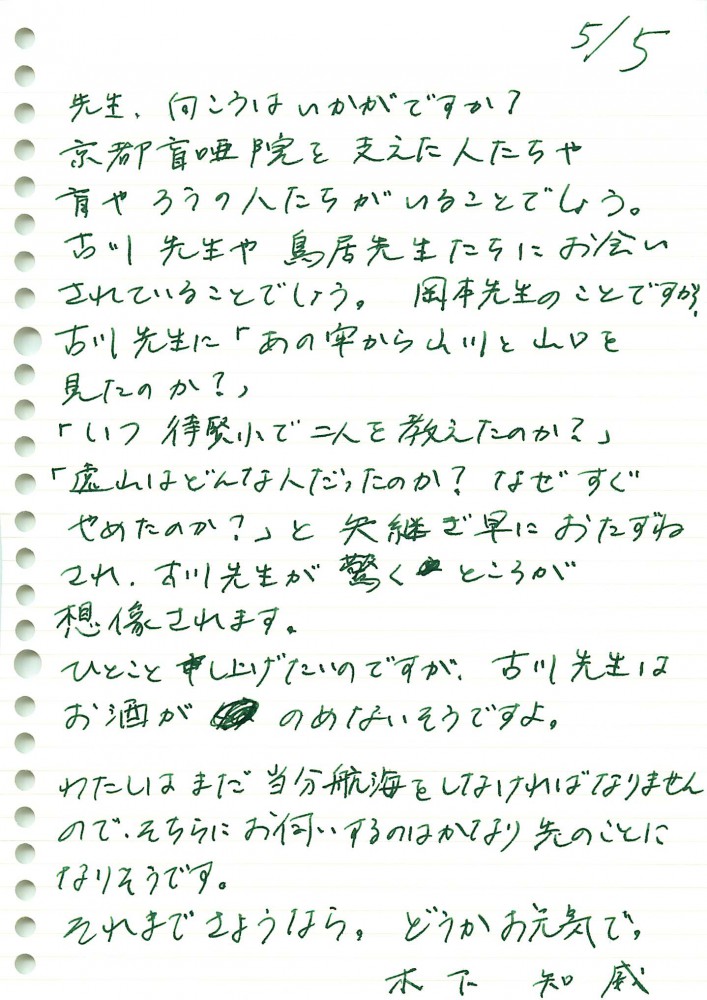 5/5
先生、向こうはいかがですか?
京都盲唖院を支えた人たちや
盲やろうの人たちがいることでしょう。
古川先生や鳥居先生たちにお会い
されていることでしょう。岡本先生のことですから、
古川先生に「あの牢から山川と山口を
見たのか?」
「いつ待賢小で二人を教えたのか?」
「遠山はどんな人だったのか? なぜすぐ
やめたのか?」と矢継ぎ早におたずね
され、古川先生が驚くところが
想像されます。
ひとこと申し上げたいのですが、古川先生は
お酒がのめないそうですよ。
わたしはまだ当分航海をしなければなりません
ので、そちらにお伺いするのはかなり先のことに
なりそうです。
それまでさようなら。どうかお元気で。
木下 知威